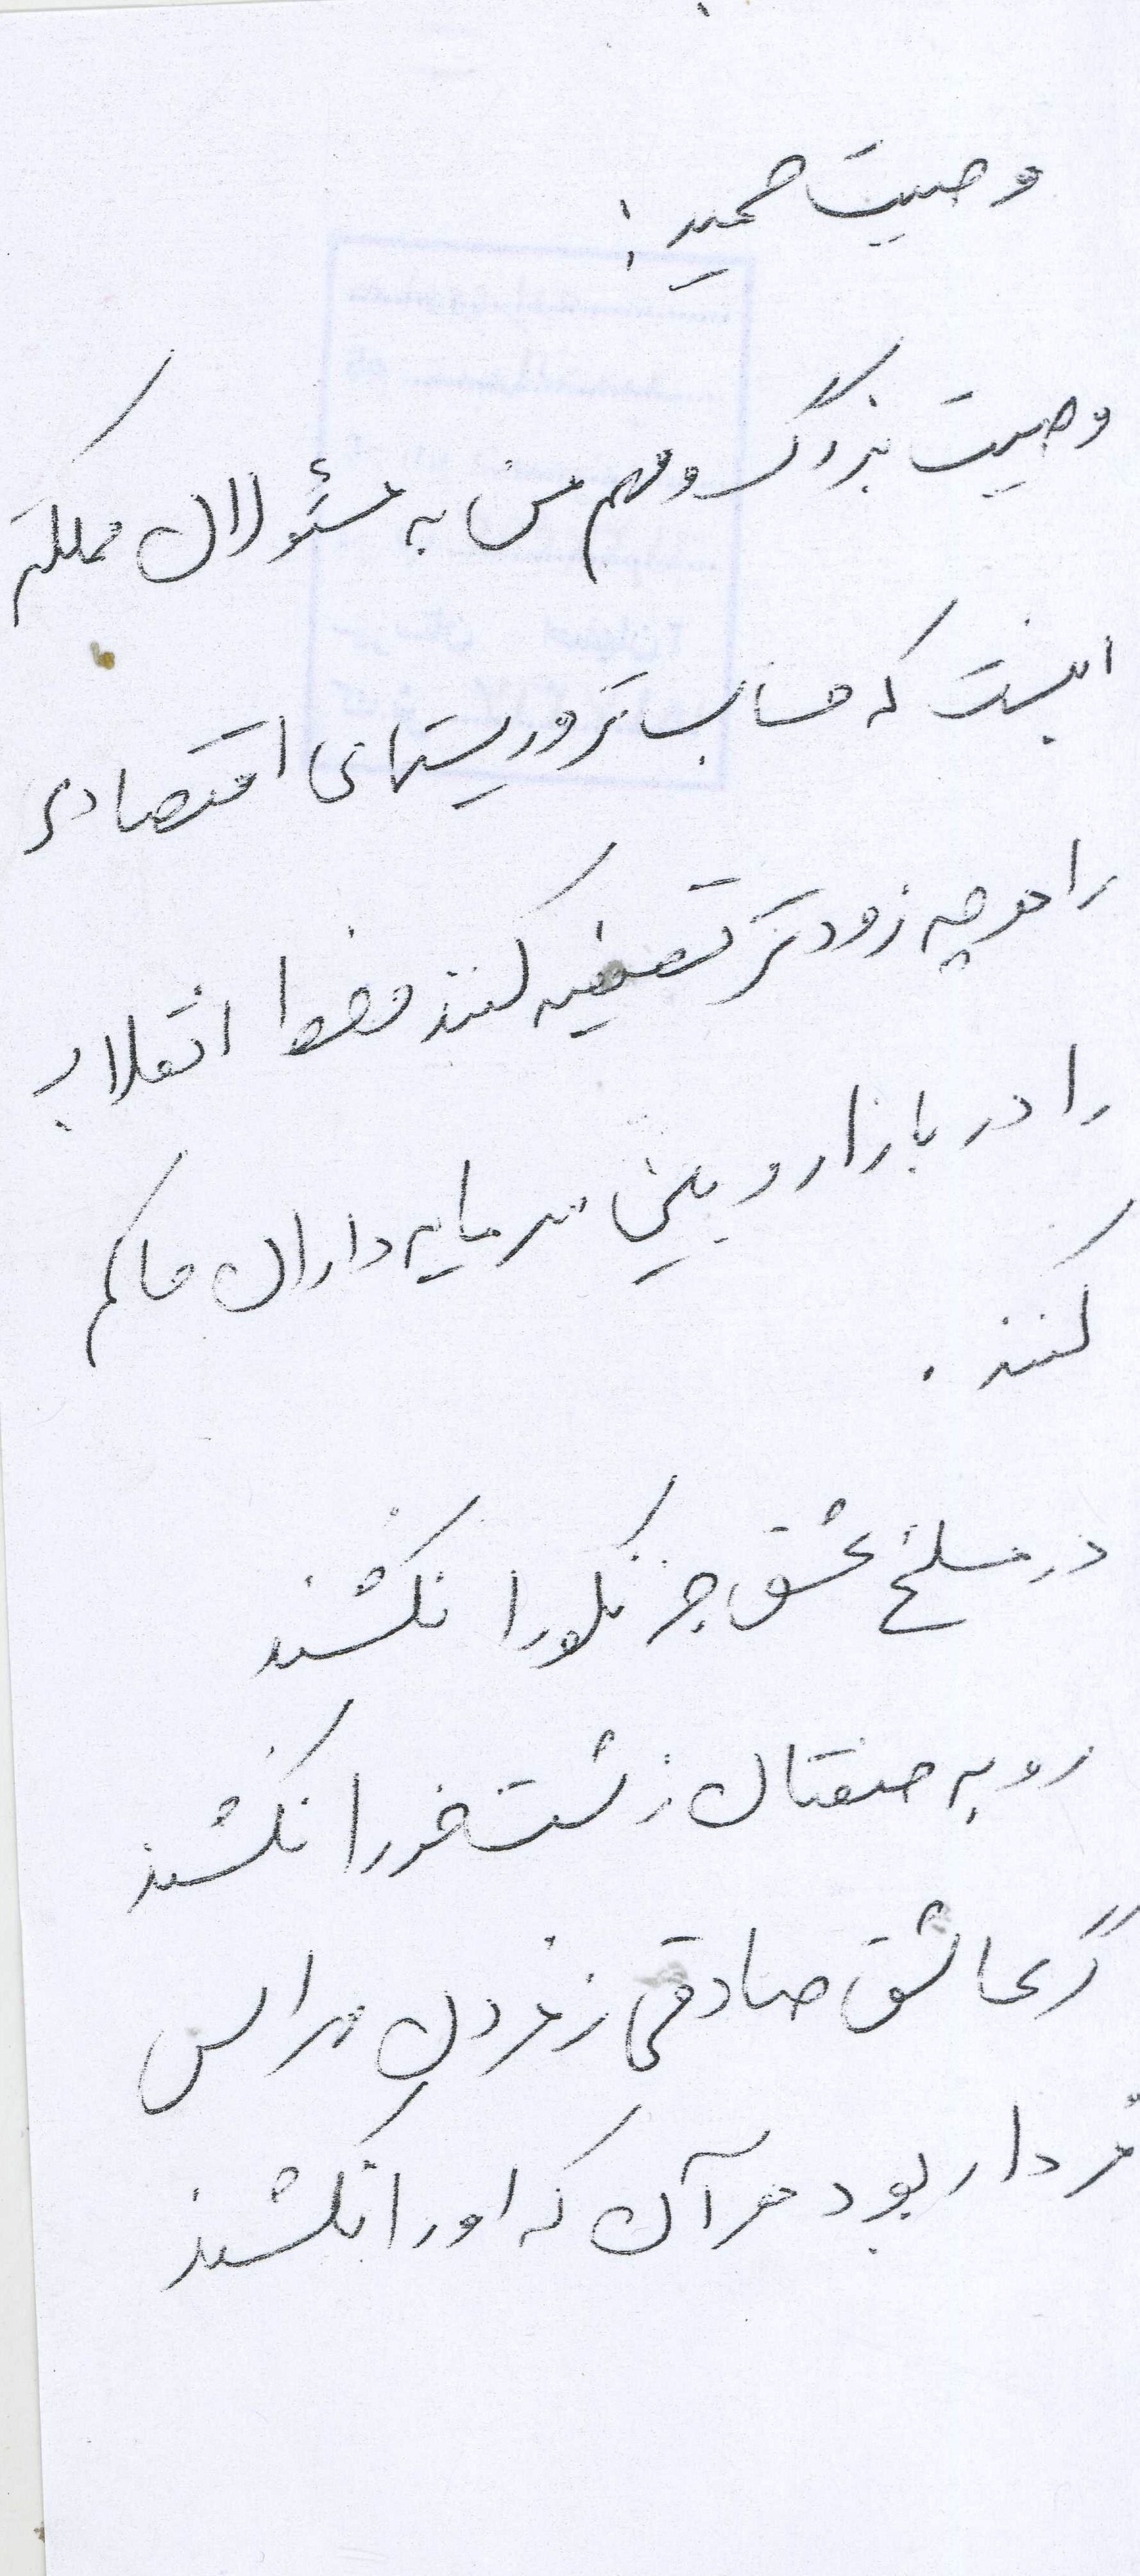 وصیت حمید:
وصیت بزرگ و مهم من به مسئولان مملکت
اینست که حساب تروریستهای اقتصادی
را هر چه زودتر تصفیه کنند و خط انقلاب
را در بازار و بین سرمایه داران حاکم
کنند.
در مسلخ عشق جز نکو را نکشند
روبه صفتان زشت خو را نکشند
گر عاشق صادقی ز مردن مهراس
مردار بود هر آن که او را نکشند